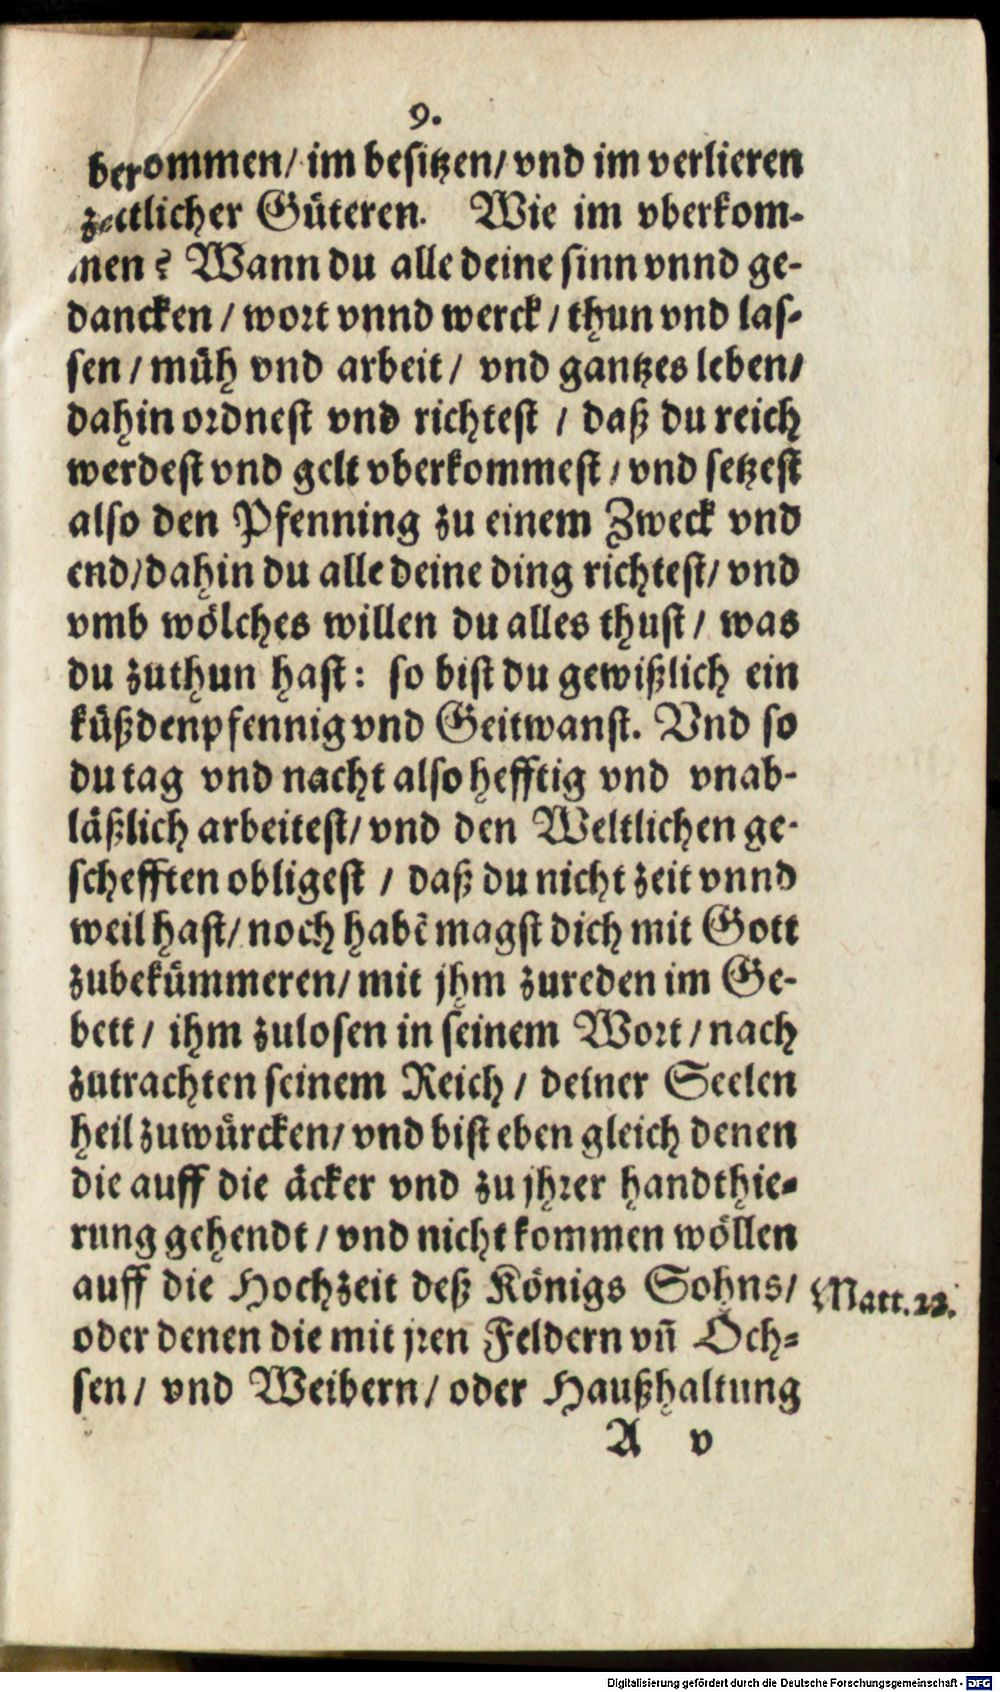 9.
berommen/ im besitzen/ vnd im verlieren
zeitlicher Güteren. Wie im vberkom-
men? Wann du alle deine sinn vnnd ge-
dancken / wort vnnd werck / thun vnd las-
sen / müh vnd arbeit / vnd gantzes leben/
dahin ordnest vnd richtest / daß du reich
werdest vnd gelt vberkommest / vnd setzest
also den Pfenning zu einem Zweck vnd
end/ dahin du alle deine ding richtest/ vnd
vmb wölches willen du alles thust / was
du zuthun hast: so bist du gewißlich ein
küßdenpfennig vnd Geitwanst. Vnd so
du tag vnd nacht also hefftig vnd vnab-
läßlich arbeitest/ vnd den Weltlichen ge-
schefften obligest / daß du nicht zeit vnnd
weil hast/ noch habẽ magst dich mit Gott
zubekümmeren/ mit jhm zureden im Ge-
bett / ihm zulosen in seinem Wort / nach
zutrachten seinem Reich / deiner Seelen
heil zuwürcken/ vnd bist eben gleich denen
die auff die äcker vnd zu jhrer handthie-
rung gehendt / vnd nicht kommen wöllen
auff die Hochzeit deß Königs Sohns/
Matt. 22.
oder denen die mit jren Feldern vñ Och-
sen/ vnd Weibern/ oder Haußhaltung
A v
Digitalisierung gefördert durch die Deutsche Forschungsgemeinschaft - DFG